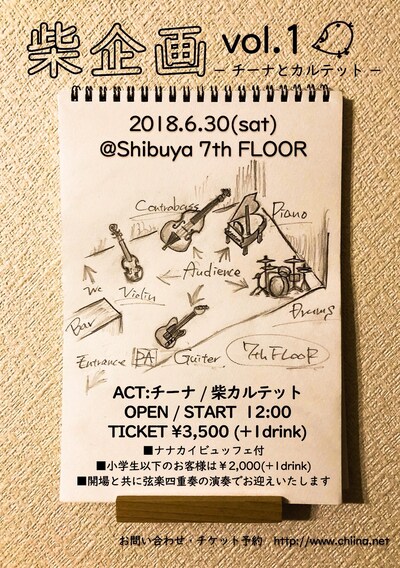 柴企画 vol.1
－チーナとカルテット－
2018.6.30(sat)
@Shibuya 7th FLOOR
Contrabass
Piano
Audience
WC
Violin
Drums
Bar
Entrance PA Guiter 7th FLOOR
ACT:チーナ / 柴カルテット
OPEN / START 12:00
TICKET ¥3,500 (+1drink)
■ナナカイビュッフェ付
■小学生以下のお客様は¥2,000(+1drink)
■開場と共に弦楽四重奏の演奏でお迎えいたします
お問い合わせ・チケット予約 http://www.chiina.net